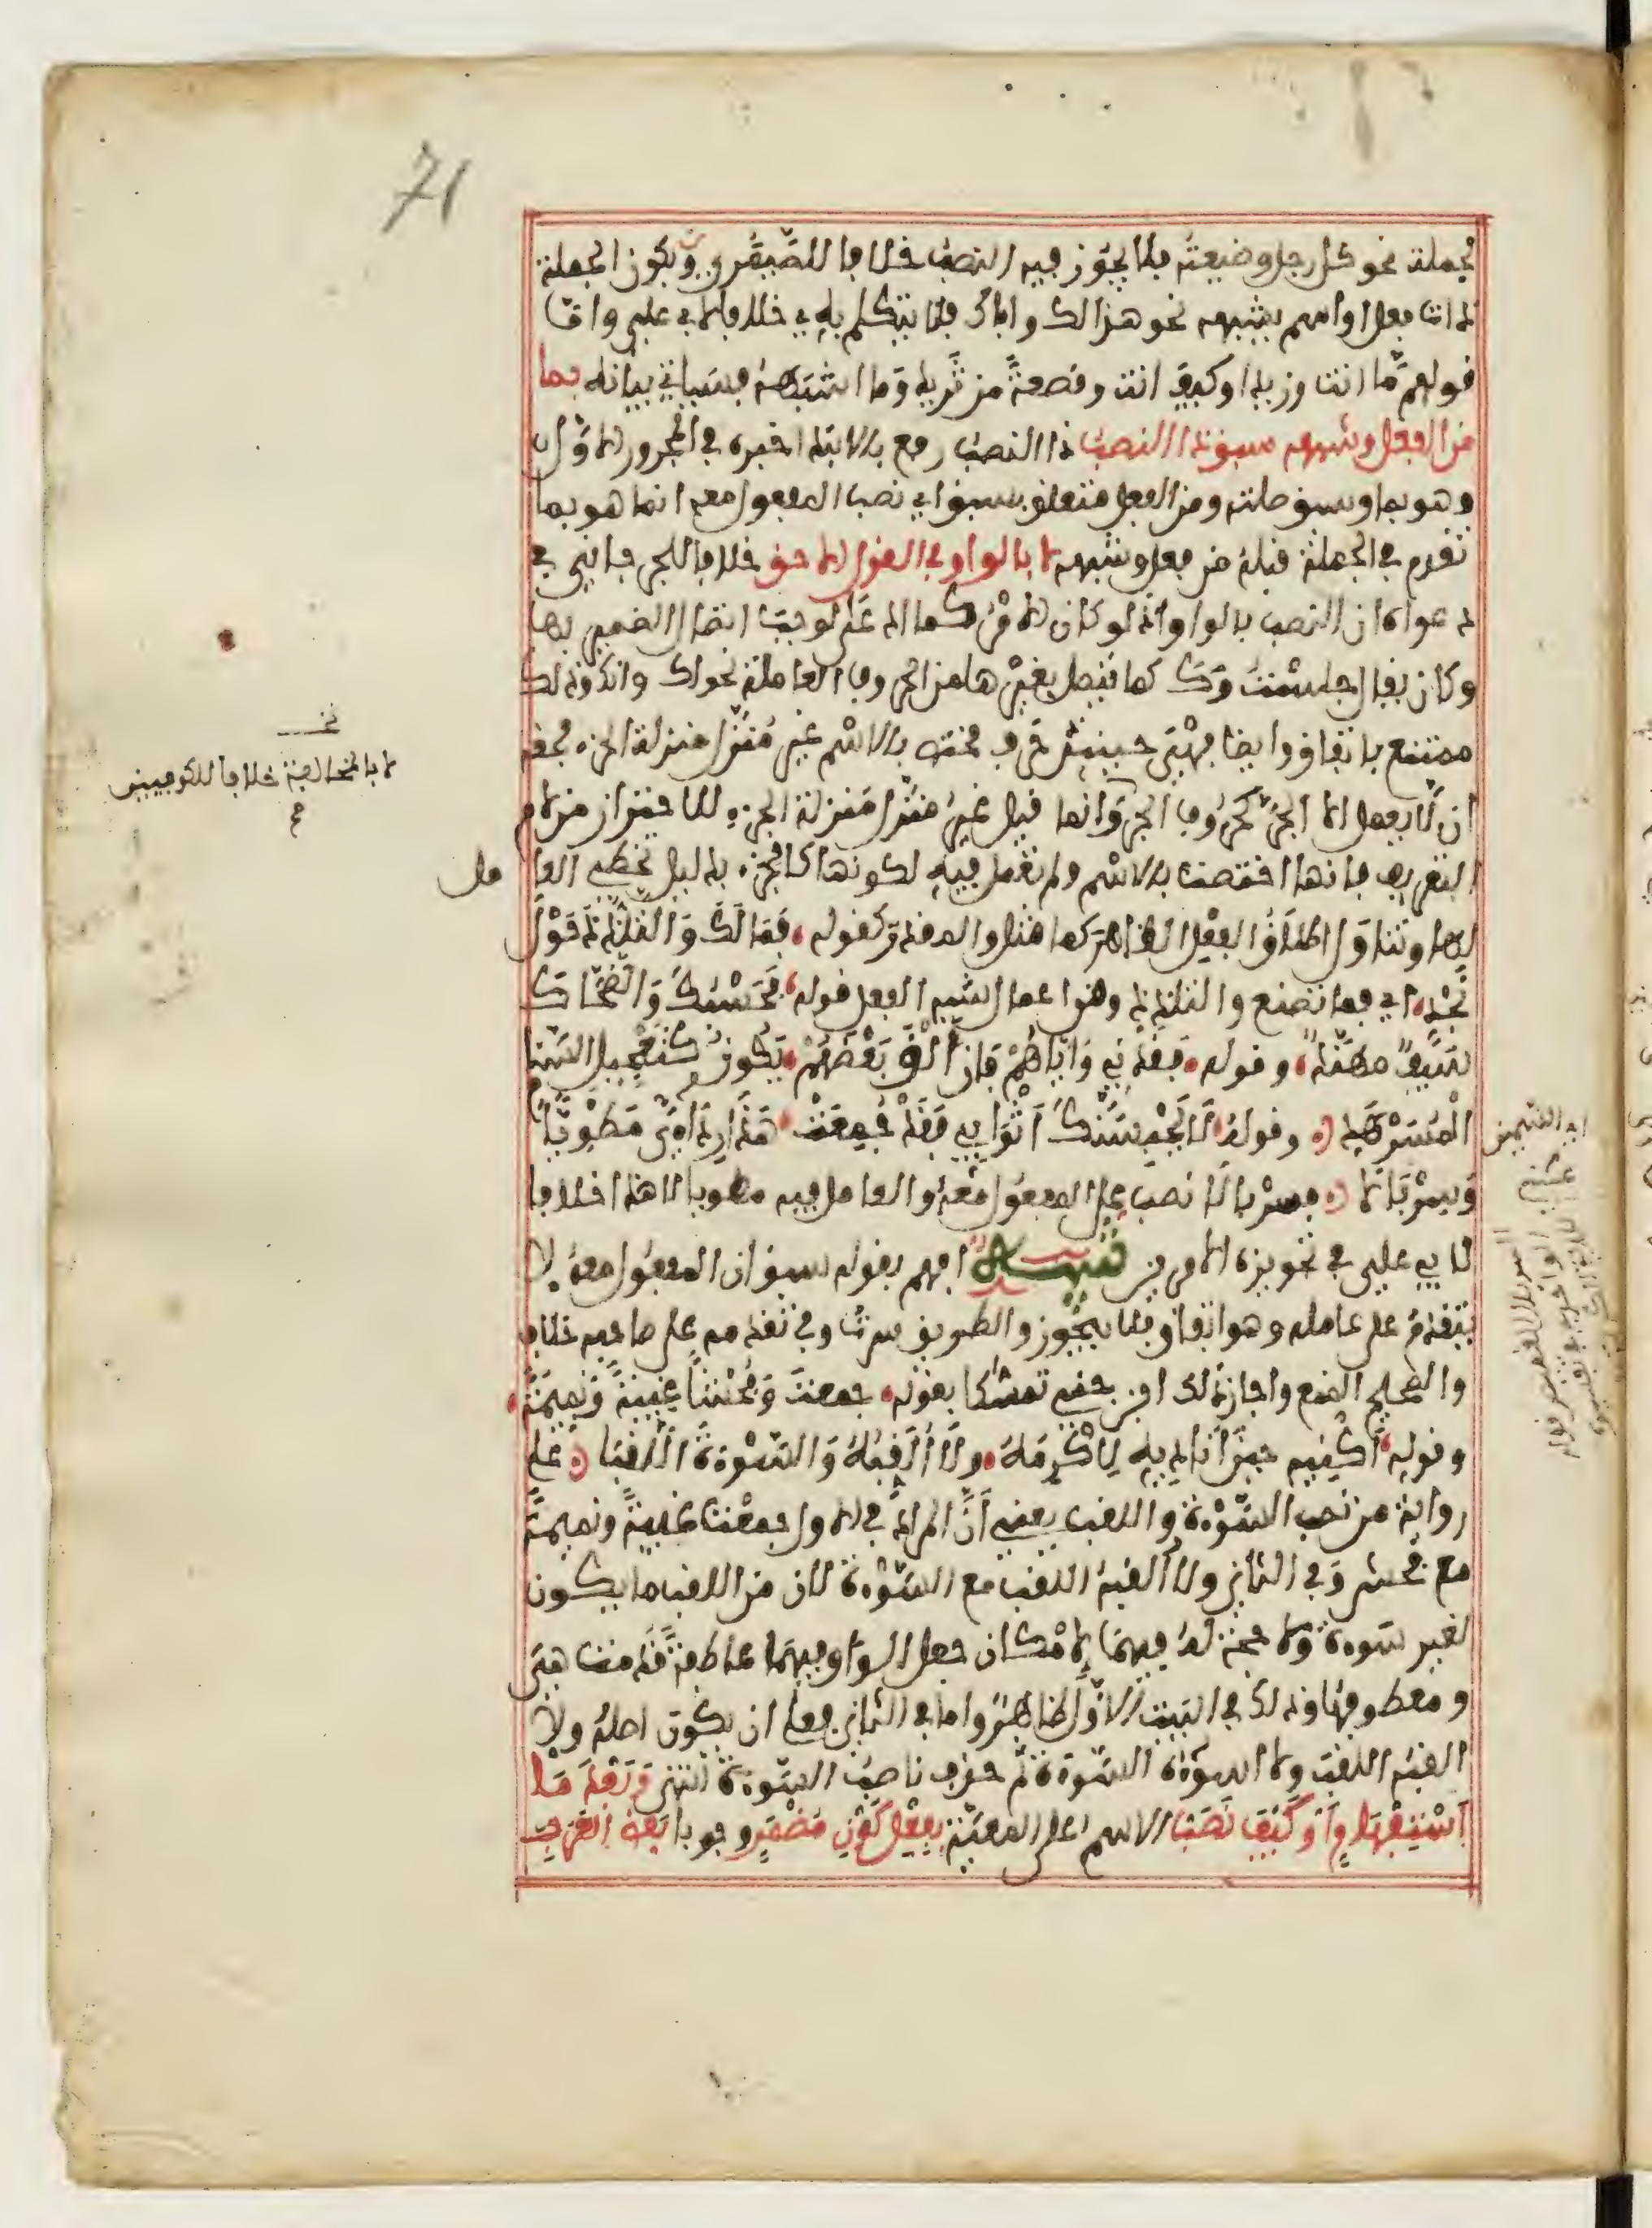 71
لجملة نحو كل رجل وضيعته فلا يجوز فيه النصب خلافا للصيمري وبكون الجملة
ذات فعل او اسم يشبهه نحو هذا لك واباك فلا يتكلم به خلافا لابي علي واما
قولهم ما انت وزيدا وكيف انت وقصعة من ثريد وما اشبهه فسياتي بيانه بما
من الفعل وشبهه سبق ذا النصب ذا النصب رفع بالابتدا خبره في المجرور الاول
وهو بما وسبق صلته ومن الفعل متعلق بسبق اي نصب المفعول معه انما هو بما
تقدم في الجملة قبله من فعل وشبهه لا بالواو في القول الاحق خلافا للجرجاني في
دعواه ان النصب بالواو اذ لو كان الامر كما ادعى لوجب اتصال الضمير بها
وكان يقال جلست وك كما يتصل بغيرها من الحروف العاملة نحو انك ولك وذلك
ممتنع باتفاق وايضا فهي حينئذ حرف مختص بالاسم غير منزل منزلة الجزء فحقه
ان لا يعمل الا الجر كحروف الجر وانما قيل غير منزل منزلة الجزء للاحتراز من لام
التعريف فانها اختصت بالاسم ولم تعمل فيه لكونها كالجزء بدليل تخطي العا
مل
لها وتناول اطلاق الفعل الظاهر كما مثل والمقدر كقوله فما لك والتلدد حول
نجد اي فما تصنع والتلدد ومن اعمال شبه الفعل قوله فحسبك والضحاك
سيف مهند وقوله فقدني واياهم فان الق بعضهم يكون كتعجيل السنام
المسرهد وقوله لا تحبسنك اثوابي فقد جمعت هذا ردائي مطويا
وسربالا فسربالا نصب على المفعول معه والعامل فيه مطويا لا هذا خلافا
لابي علي في تجويزه الامرين تنبيه افهم بقوله سبق ان المفعول معه لا
يتقدم على عامله وهو اتفاق فلا يجوز والطريق سرت وفي تقدمه على صاحبه خلاف
والصحيح المنع واجاز ذلك ابن جني تمسكا بقوله جمعت وفحشا غيبة ونميمة
وقوله اكنيه حين اناديه لاكرمه ولا القبه والسوءة اللقبا على
رواية من نصب السوءة واللقب يعني ان المراد في الاول جمعت غيبة ونميمة
مع فحش وفي الثاني ولا القبه اللقب مع السوءة لان من اللقب ما يكون
لغير سوءة ولا حجة له فيهما لامكان جعل الواو فيهما عاطفة قدمت هي
ومعطوفها وذلك في البيت الاول ظاهر واما في الثاني فعلى ان يكون اصله ولا
القبه اللقب ولا اسوءه السوءة ثم حذف ناصب السوءة انتهى وبعد ما
استفهام او كيف نصب الاسم على المعية بفعل كون مضمر وجوبا بعض العرب
نخـ
لا بالمخالفة خلافا للكوفيين